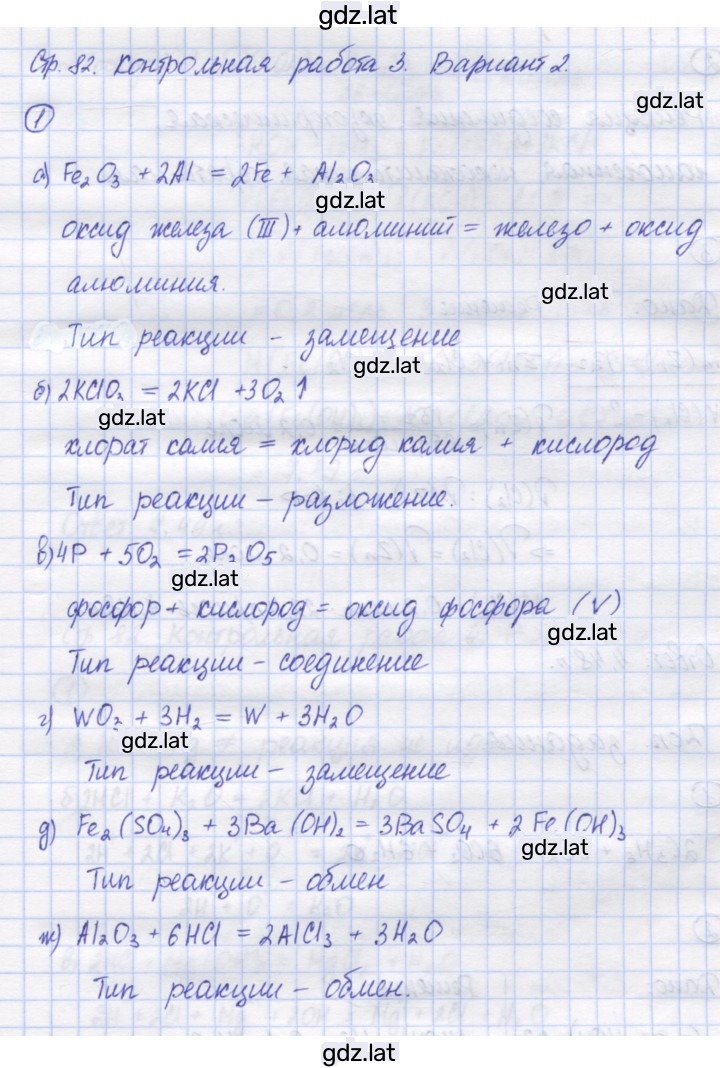 gdz.lat
Стр. 82. Контрольная работа 3. Вариант 2.
gdz.lat
1
а) Fe₂O₃ + 2Al = 2Fe + Al₂O₃
gdz.lat
оксид железа (III) + алюминий = железо + оксид
алюминия.
gdz.lat
Тип реакции - замещение
gdz.lat
б) 2KClO₃ = 2KCl + 3O₂ ↑
gdz.lat
хлорат калия = хлорид калия + кислород
Тип реакции - разложение.
в) 4P + 5O₂ = 2P₂O₅
gdz.lat
фосфор + кислород = оксид фосфора (V)
gdz.lat
Тип реакции - соединение
г) WO₃ + 3H₂ = W + 3H₂O
gdz.lat
Тип реакции - замещение
д) Fe₂(SO₄)₃ + 3Ba(OH)₂ = 3BaSO₄ + 2Fe(OH)₃
gdz.lat
Тип реакции - обмен
ж) Al₂O₃ + 6HCl = 2AlCl₃ + 3H₂O
Тип реакции - обмен.
gdz.lat